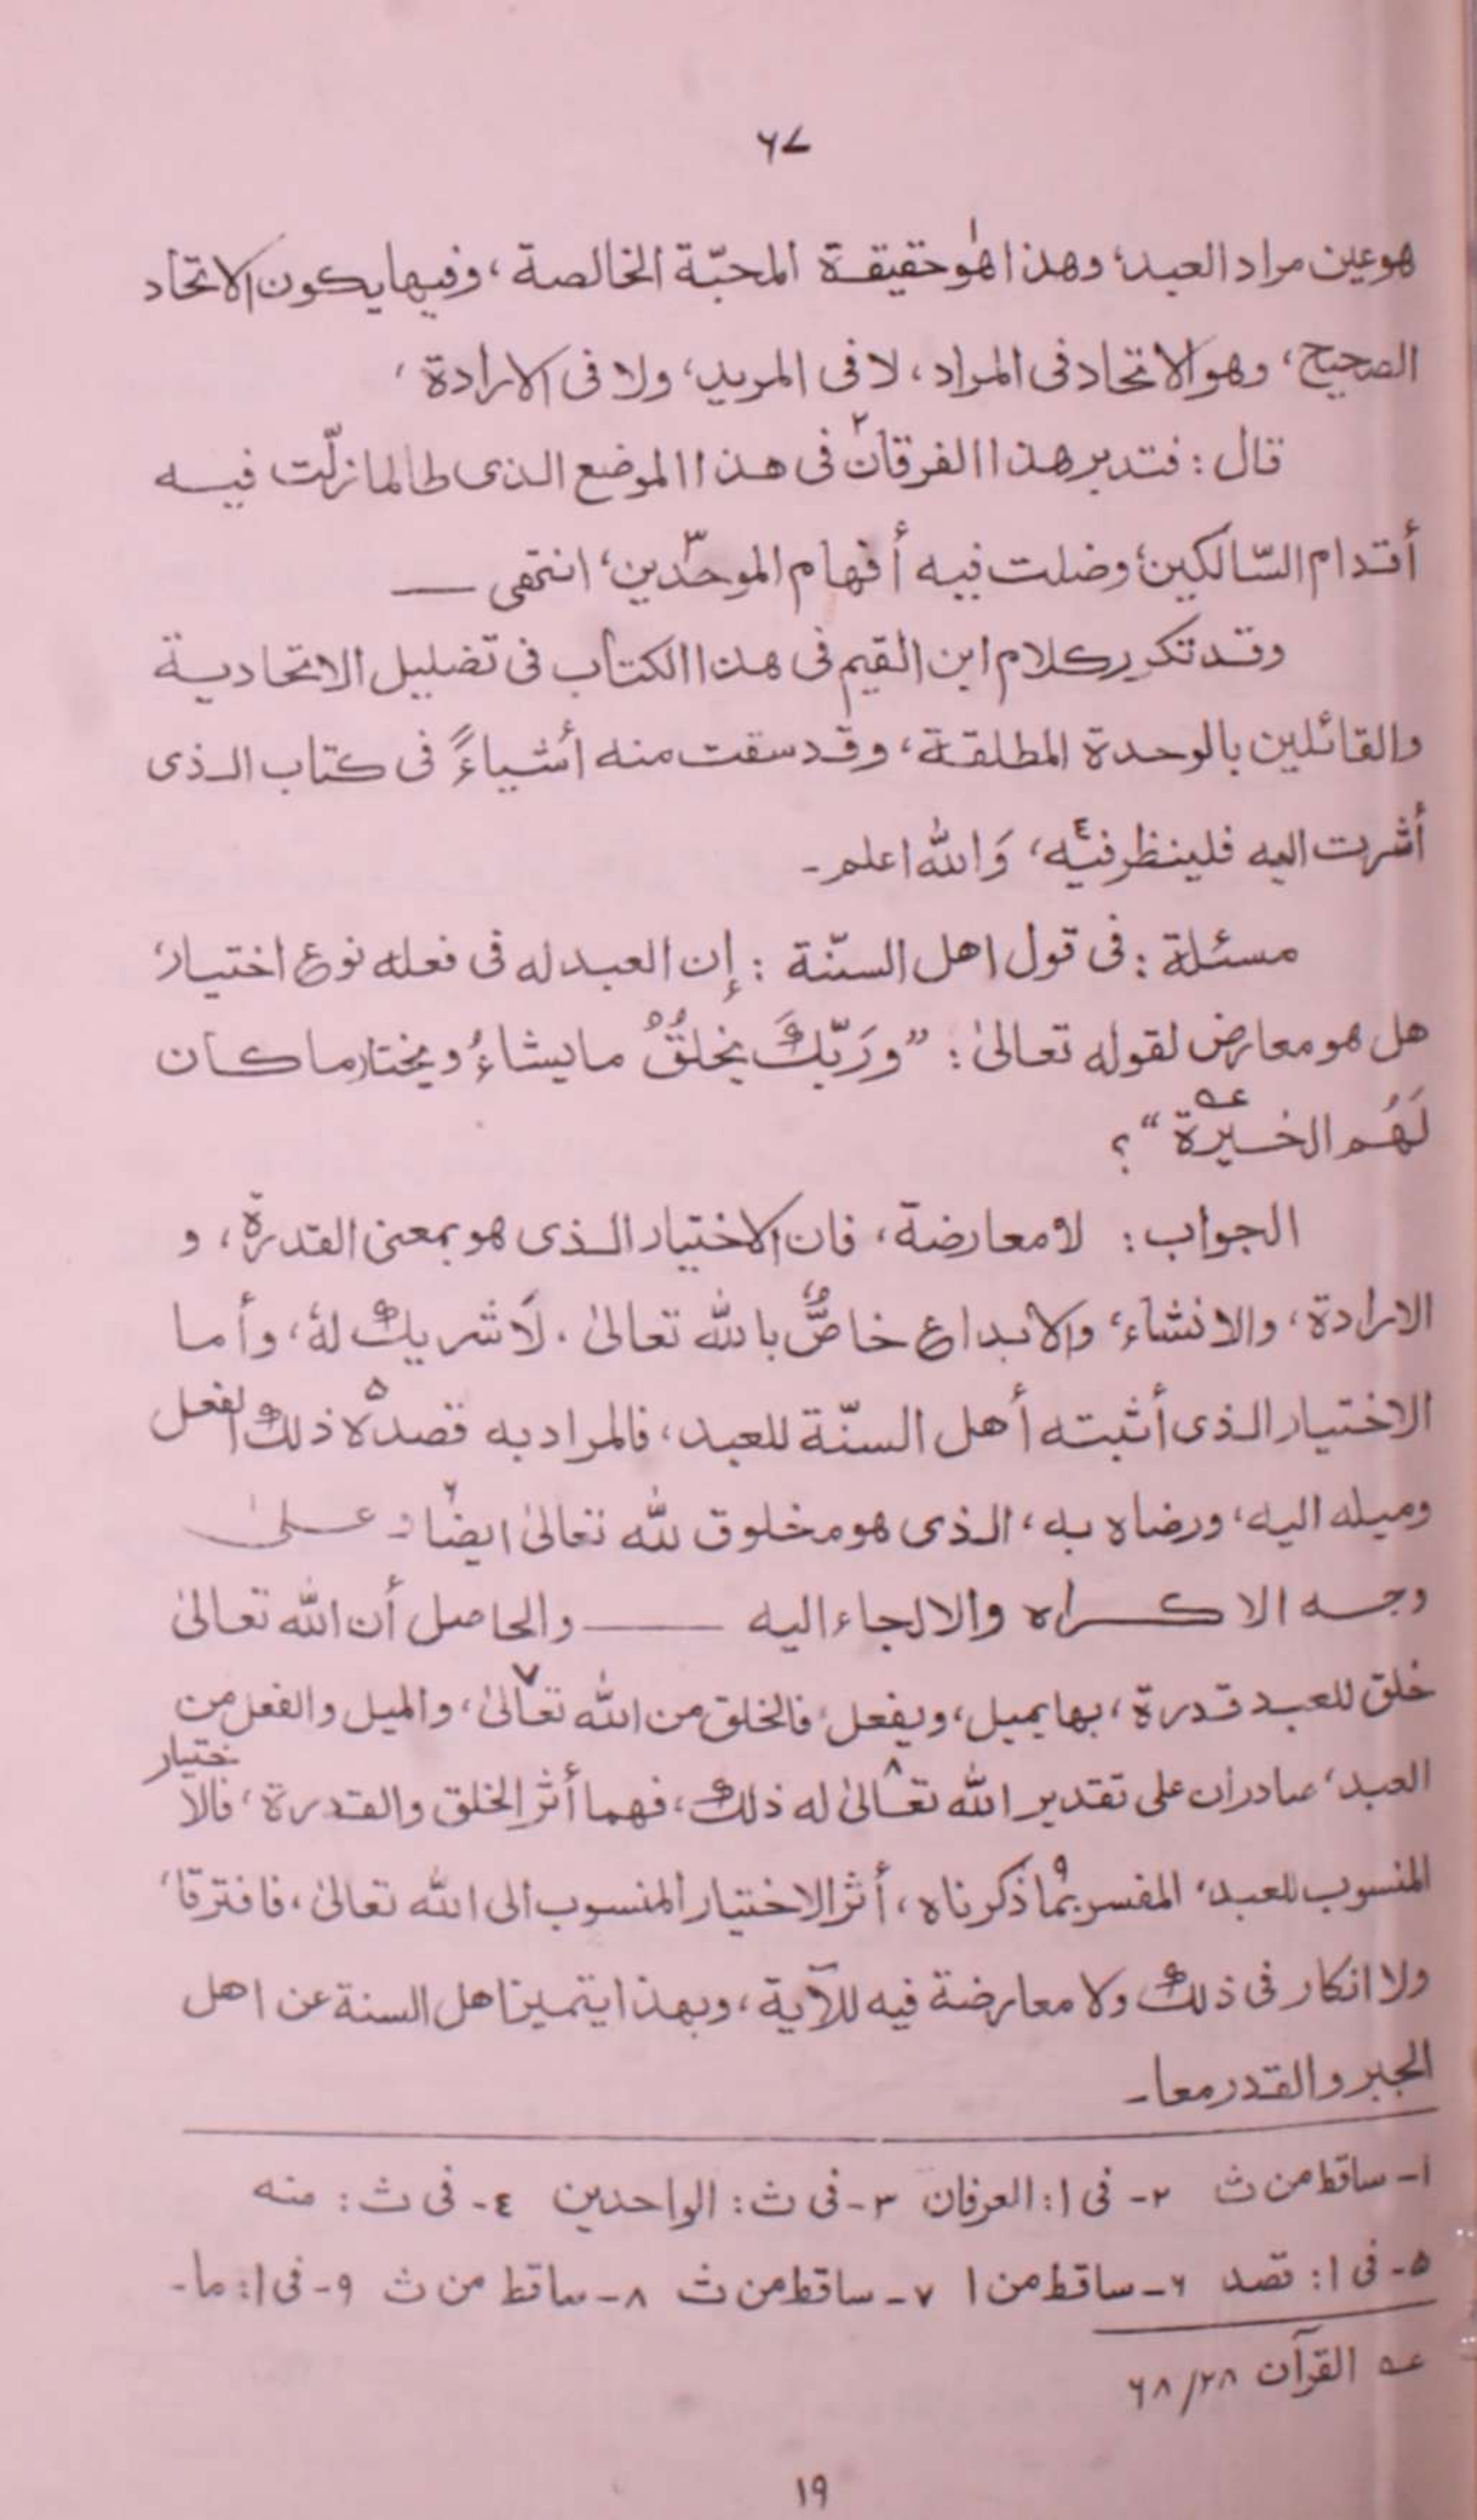 ٦٧
هو عين مراد العبد، وهذا هو١ حقيقة المحبّة الخالصة، وفيها يكون الاتحاد
الصحيح، وهو الاتحاد فى المراد، لا فى المريد، ولا فى الارادة،
قال: فتدبر هذا الفرقان٢ فى هذا الموضع الذى طالما زلّت فيه
أقدام السّالكين، وضلت فيه أفهام الموحّدين٣، انتهى ——
وقد تكرر كلام ابن القيم فى هذا الكتاب فى تضليل الاتحادية
والقائلين بالوحدة المطلقة، وقد سقت منه أشياءً فى كتاب الذى
أشرت اليه فلينظر فيه٤، وَالله اعلم۔
مسئلة: فى قول اهل السنّة: إن العبد له فى فعله نوع اختيار،
هل هو معارض لقوله تعالىٰ: ”ورَبّكَ يخلقُ مايشاءُ ويختار ما كان
لَهُم الخيرة عه“؟
الجواب: لا معارضة، فان الاختيار الذى هو بمعنى القدرة، و
الارادة، والانشاء، والابداع خاصٌّ بالله تعالىٰ. لَا شريك لهُ، وأما
الاختيار الذى أثبته أهل السنّة للعبد، فالمراد به قصده٥ ذلك الفعل
وميله اليه، ورضاه به، الذى هو مخلوق لله تعالىٰ ايضًا٦ علىٰ
وجه الاكراه والالجاء اليه —— والحاصل أن الله تعالىٰ
خلق للعبد قدرة، بها يميل، ويفعل، فالخلق من الله تعالىٰ٧، والميل والفعل من
العبد، صادران على تقدير الله تعالىٰ٨ له ذلك، فهما أثر الخلق والقدرة، فالاختيار
المنسوب للعبد، المفسر بما٩ ذكرناه، أثر الاختيار المنسوب الى الله تعالىٰ، فافترقا،
ولا انكار فى ذلك ولا معارضة فيه للآية، وبهذا يتميز اهل السنة عن اهل
الجبر والقدر معا۔
١- ساقط من ث ٢- فى ا: العرفان ٣- فى ث: الواحدين ٤- فى ث: منه
٥- فى ا: قصد ٦- ساقط من ا ٧- ساقط من ث ٨- ساقط من ث ٩- فى ا: ما-
عه القرآن ٦٨/٢٨
١٩